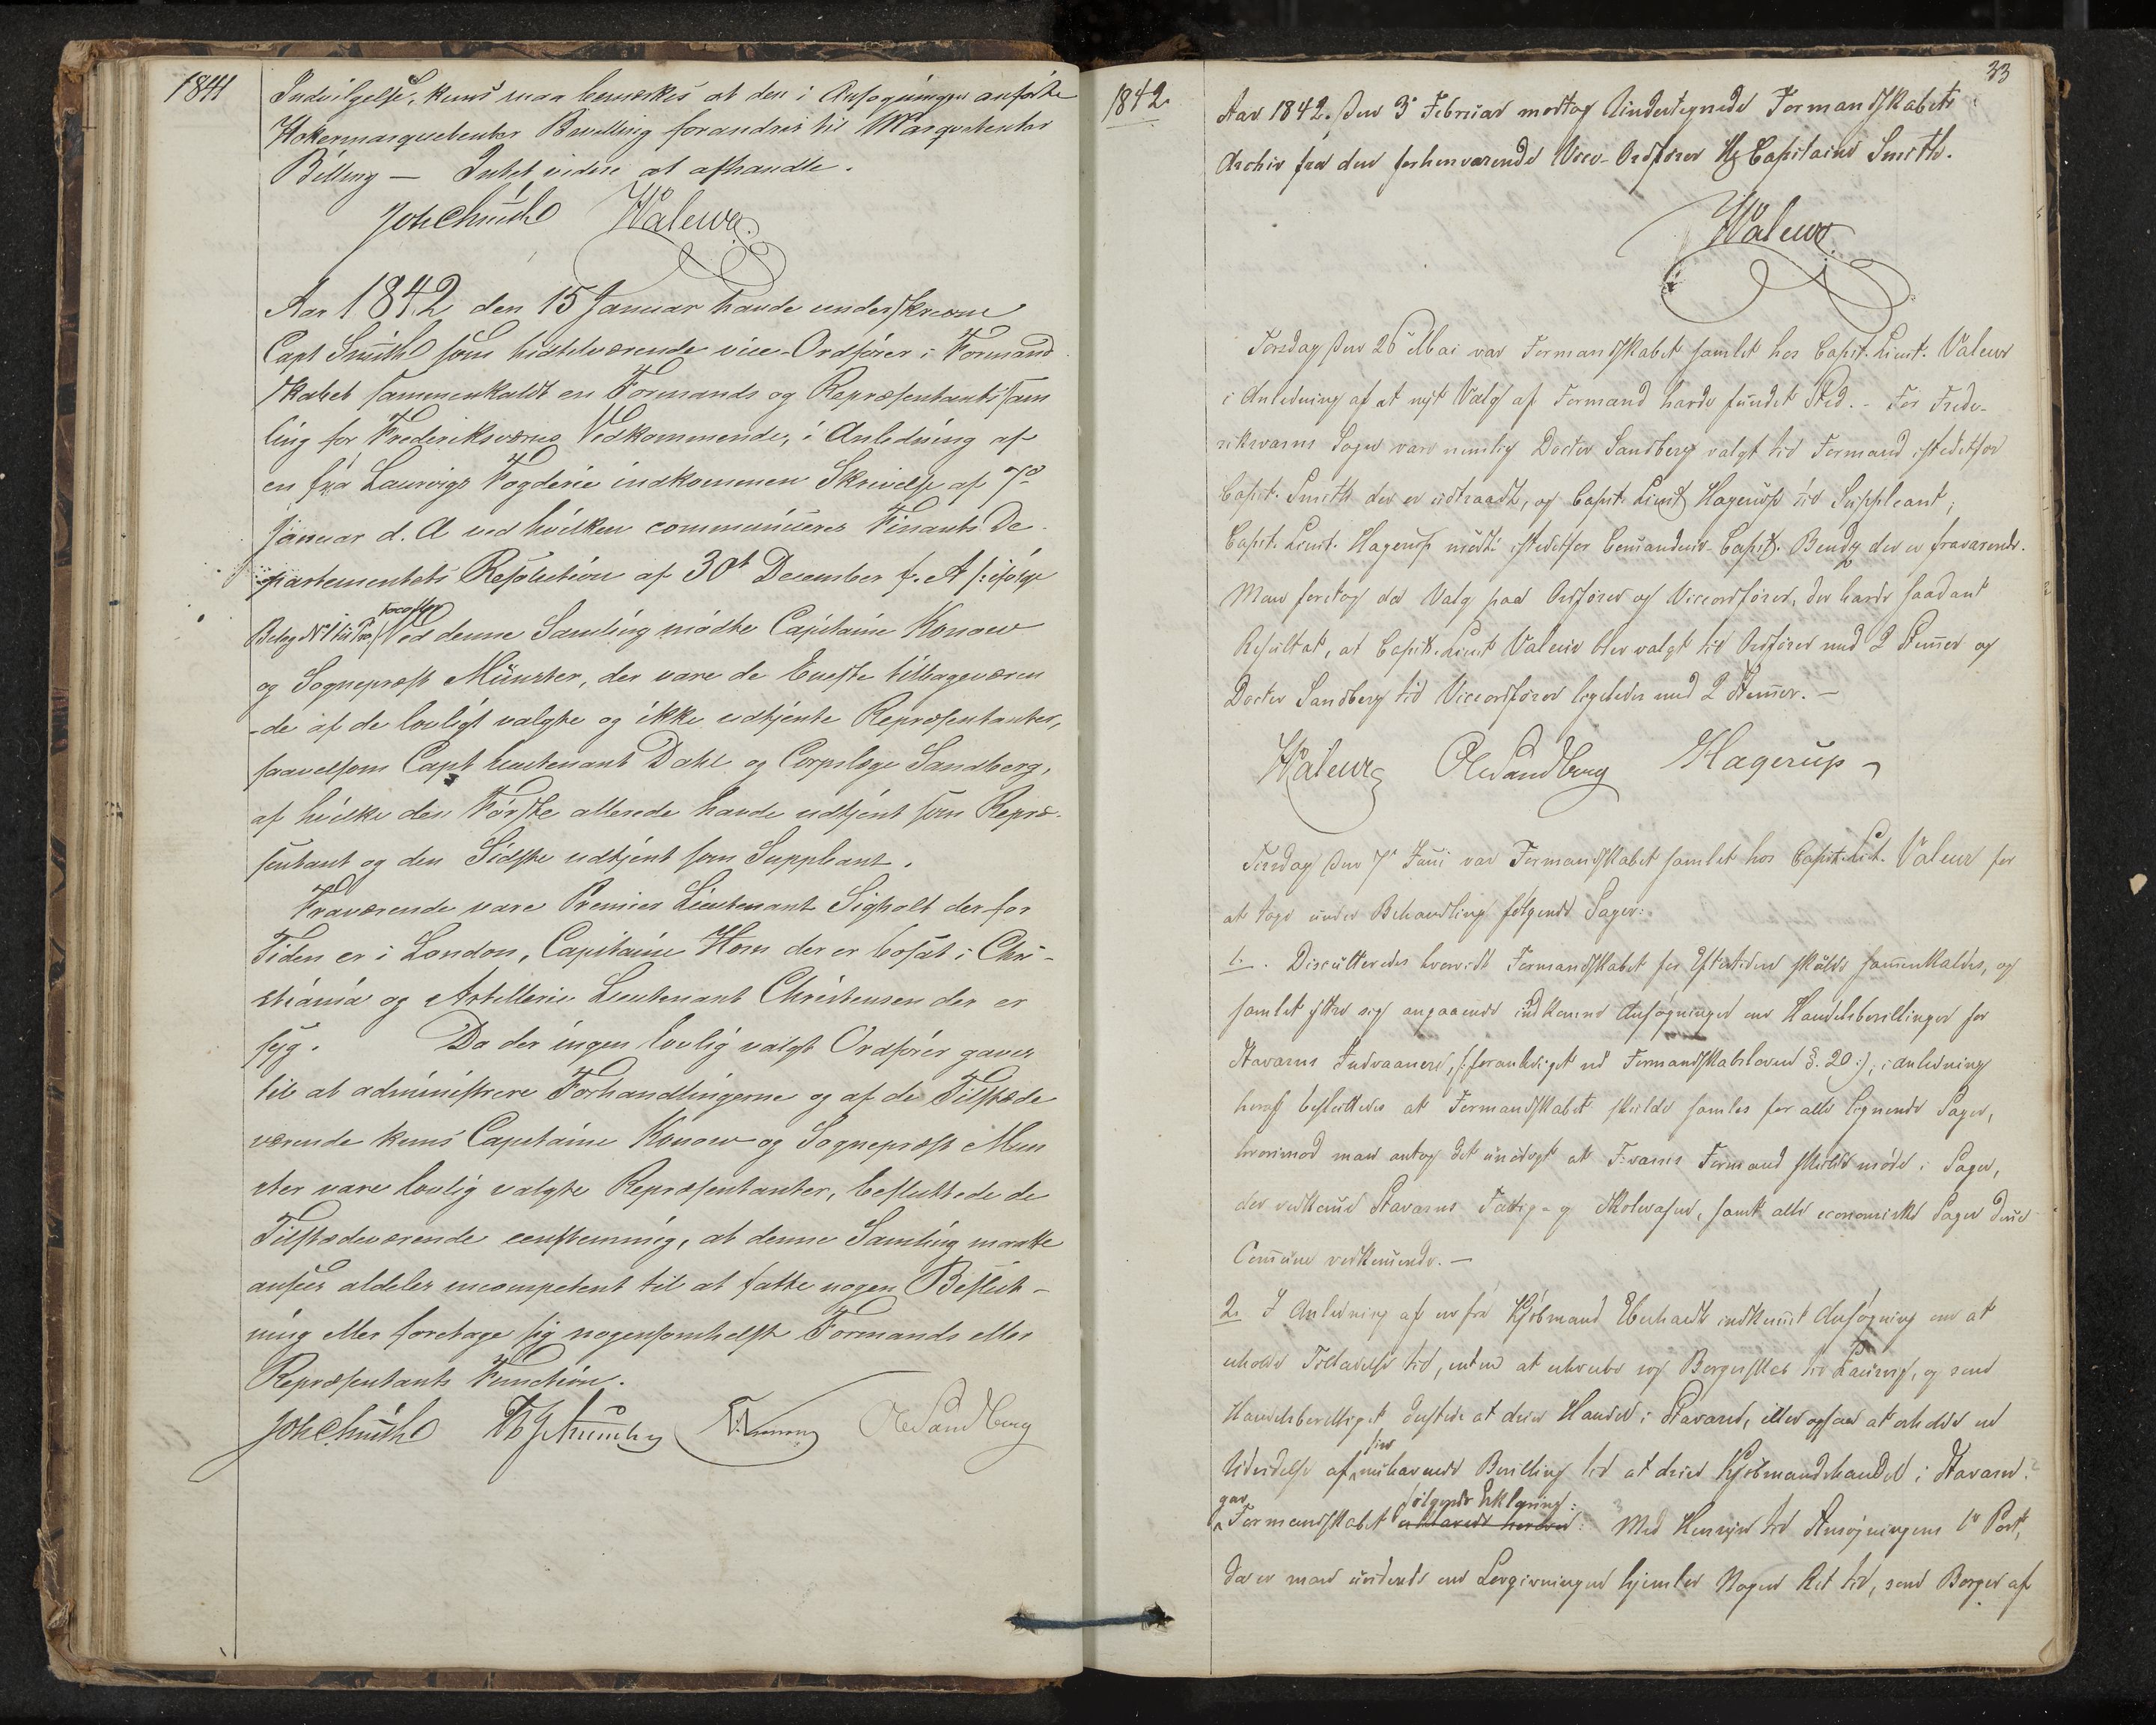 1841
Indvilgelse, kuns maa bemærkes at den i Ansøgningen anførte
Høkermarquetenter Bevilling forandres til Marquetenter
Billing — Intet videre at afhandle.
Joh Smith Waleur
Aar 1842 den 15 Januar havde underskrevne
Capt Smith som hidtilværende vice-Ordfører i Formand
skabet sammenkaldt en Formands og Repræsentantsam
ling for Frederiksværns Vedkommende, i Anledning af
en fra Laurvigs Fogderie indkommen Skrivelse af 7de
Januar d. A ved hvilken communiceres Finants De-
partementets Resolution af 30t December f. A ifølge
Bilag No 1
Ved denne Samling mødte Capitaine Konow
og Sognepræst Münster, der vare de Eneste tilbageværen
-de af de lovligt valgte og ikke udtjente Repræsentanter,
saavelsom Capt Lieutenant Dahl og Corpslæge Sandberg,
af hvilke den Første allerede havde udtjent som Repræ-
sentant og den Sidste udtjent som Suppleant.
Fraværende vare Premier Lieutenant Sigholt der for
Tiden er i London, Capitaine Horn der er bosat i Chri-
stiania og Artillerie Lieutenant Christensen der er
syg. Da der ingen lovlig valgt Ordfører gaves
til at administrere Forhandlingerne og af de Tilstæde
værende kuns Capitaine Konow og Sognepræst Mün
ster vare lovlig valgte Repræsentanter, besluttede de
Tilstædeværende eenstemmig, at denne Samling maatte
ansees aldeles incompetent til at fatte nogen Beslut-
ning eller foretage sig nogensomhelst Formands eller
Repræsentants Function.
Joh Smith Konow Ole Sandberg
33
1842.
Aar 1842. den 3de Februar modtog Undertegnede Formandskabets
Archiv fra den forhenværende Vice-Ordfører Hr Capitaine Smith.
Waleur
Torsdag den 26 Mai var Formandskabet samlet hos Capit. Lieut. Valeur
i Anledning af at nyt Valg af Formand havde fundet Sted. - For Frede-
riksværns Sogn var nemlig Doctor Sandberg valgt til Formand istedetfor
Capit. Smith der er udtraadt, og Capit. Lieut Hagerup til Suppleant;
Capit. Lieut. Hagerup mødte istedetfor Comandeur-Capit. Bendz der er fraværende.
Man foretog da Valg paa Ordfører og Viceordfører, der havde saadant
Resultat, at Capit. Lieut Valeur blev valgt til Ordfører med 2 Stemer og
Doctor Sandberg til Viceordfører ligeledes med 2 Stemer. —
Waleur Ole Sandberg Hagerup
Tirsdag den 7de Juni var Formandskabet samlet hos Capit. Lit. Valeur for
at tage under Behandling følgende Sager:
1. Discutteredes hvorvidt Formandskabet for Eftertiden skulde samenkaldes, og
samlet yttre sig angaaende indkomne Ansøgninger om Handelsbevillinger for
Staværns Indvaanere, (:foranlediget ved Formandskabsloven §. 20:), i anledning
heraf besluttedes at Formandskabet skulde samles for alle lignende Sager,
hvorimod man antog det unødigt at F:værns Formand skulde møde i Sager,
der vedkomme Staværns Fattig- og Skolevæsen, samt alle economiske Sager dene
Comune vedkomende. —
2. I Anledning af en fra Kjøbmand Eberhardt indkomt Ansøgning om at
erholde Tilladelse til, enten at erhverve sig Borgerskab til Laurvig, og som
Handelsberettiget dersteds at drive Handel i Staværn, eller ogsaa at erholde en
Udvidelse af sin nuhavende Bevilling til at drive Kjøbmandshandel i Staværn.
gav Formandskabet erklærede herover følgende Erklæring: Med Hensyn til Ansøgningens 1ste Post,
da er man uvidende om Lovgivningen hjemler Nogen Ret til, som Borger af